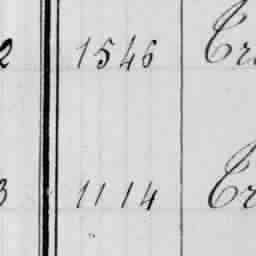 2 1546 Tr
3 1114 Tr